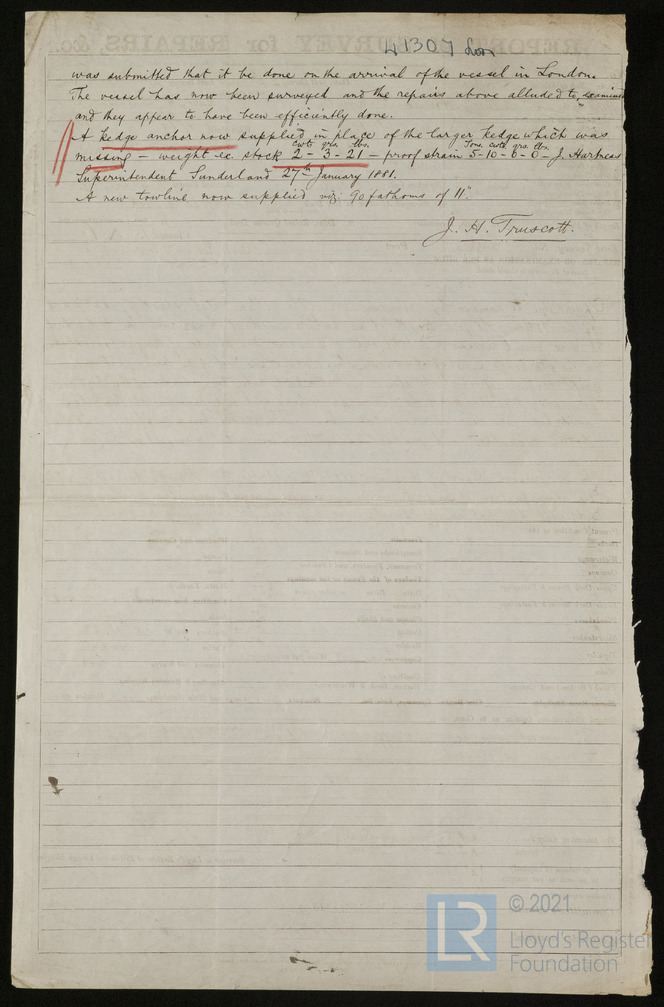 41307 Lon
was submitted that it be done on the arrival of the vessel in London.
The vessel has now been surveyed and the repairs above alluded to, examined
and they appear to have been efficiently done.
A kedge anchor now supplied in place of the larger kedge which was
cwts qrs. lbs. Tons. cwts. qrs. lbs.
missing — weight ex. stock 2 - 3 - 21 — proof strain 5-10-6-0 — J. Hartness
Superintendent Sunderland 27th January 1881.
A new towline now supplied viz: 90 fathoms of 11".
J. H. Truscott.
© 2021
LR
Lloyd's Register
Foundation